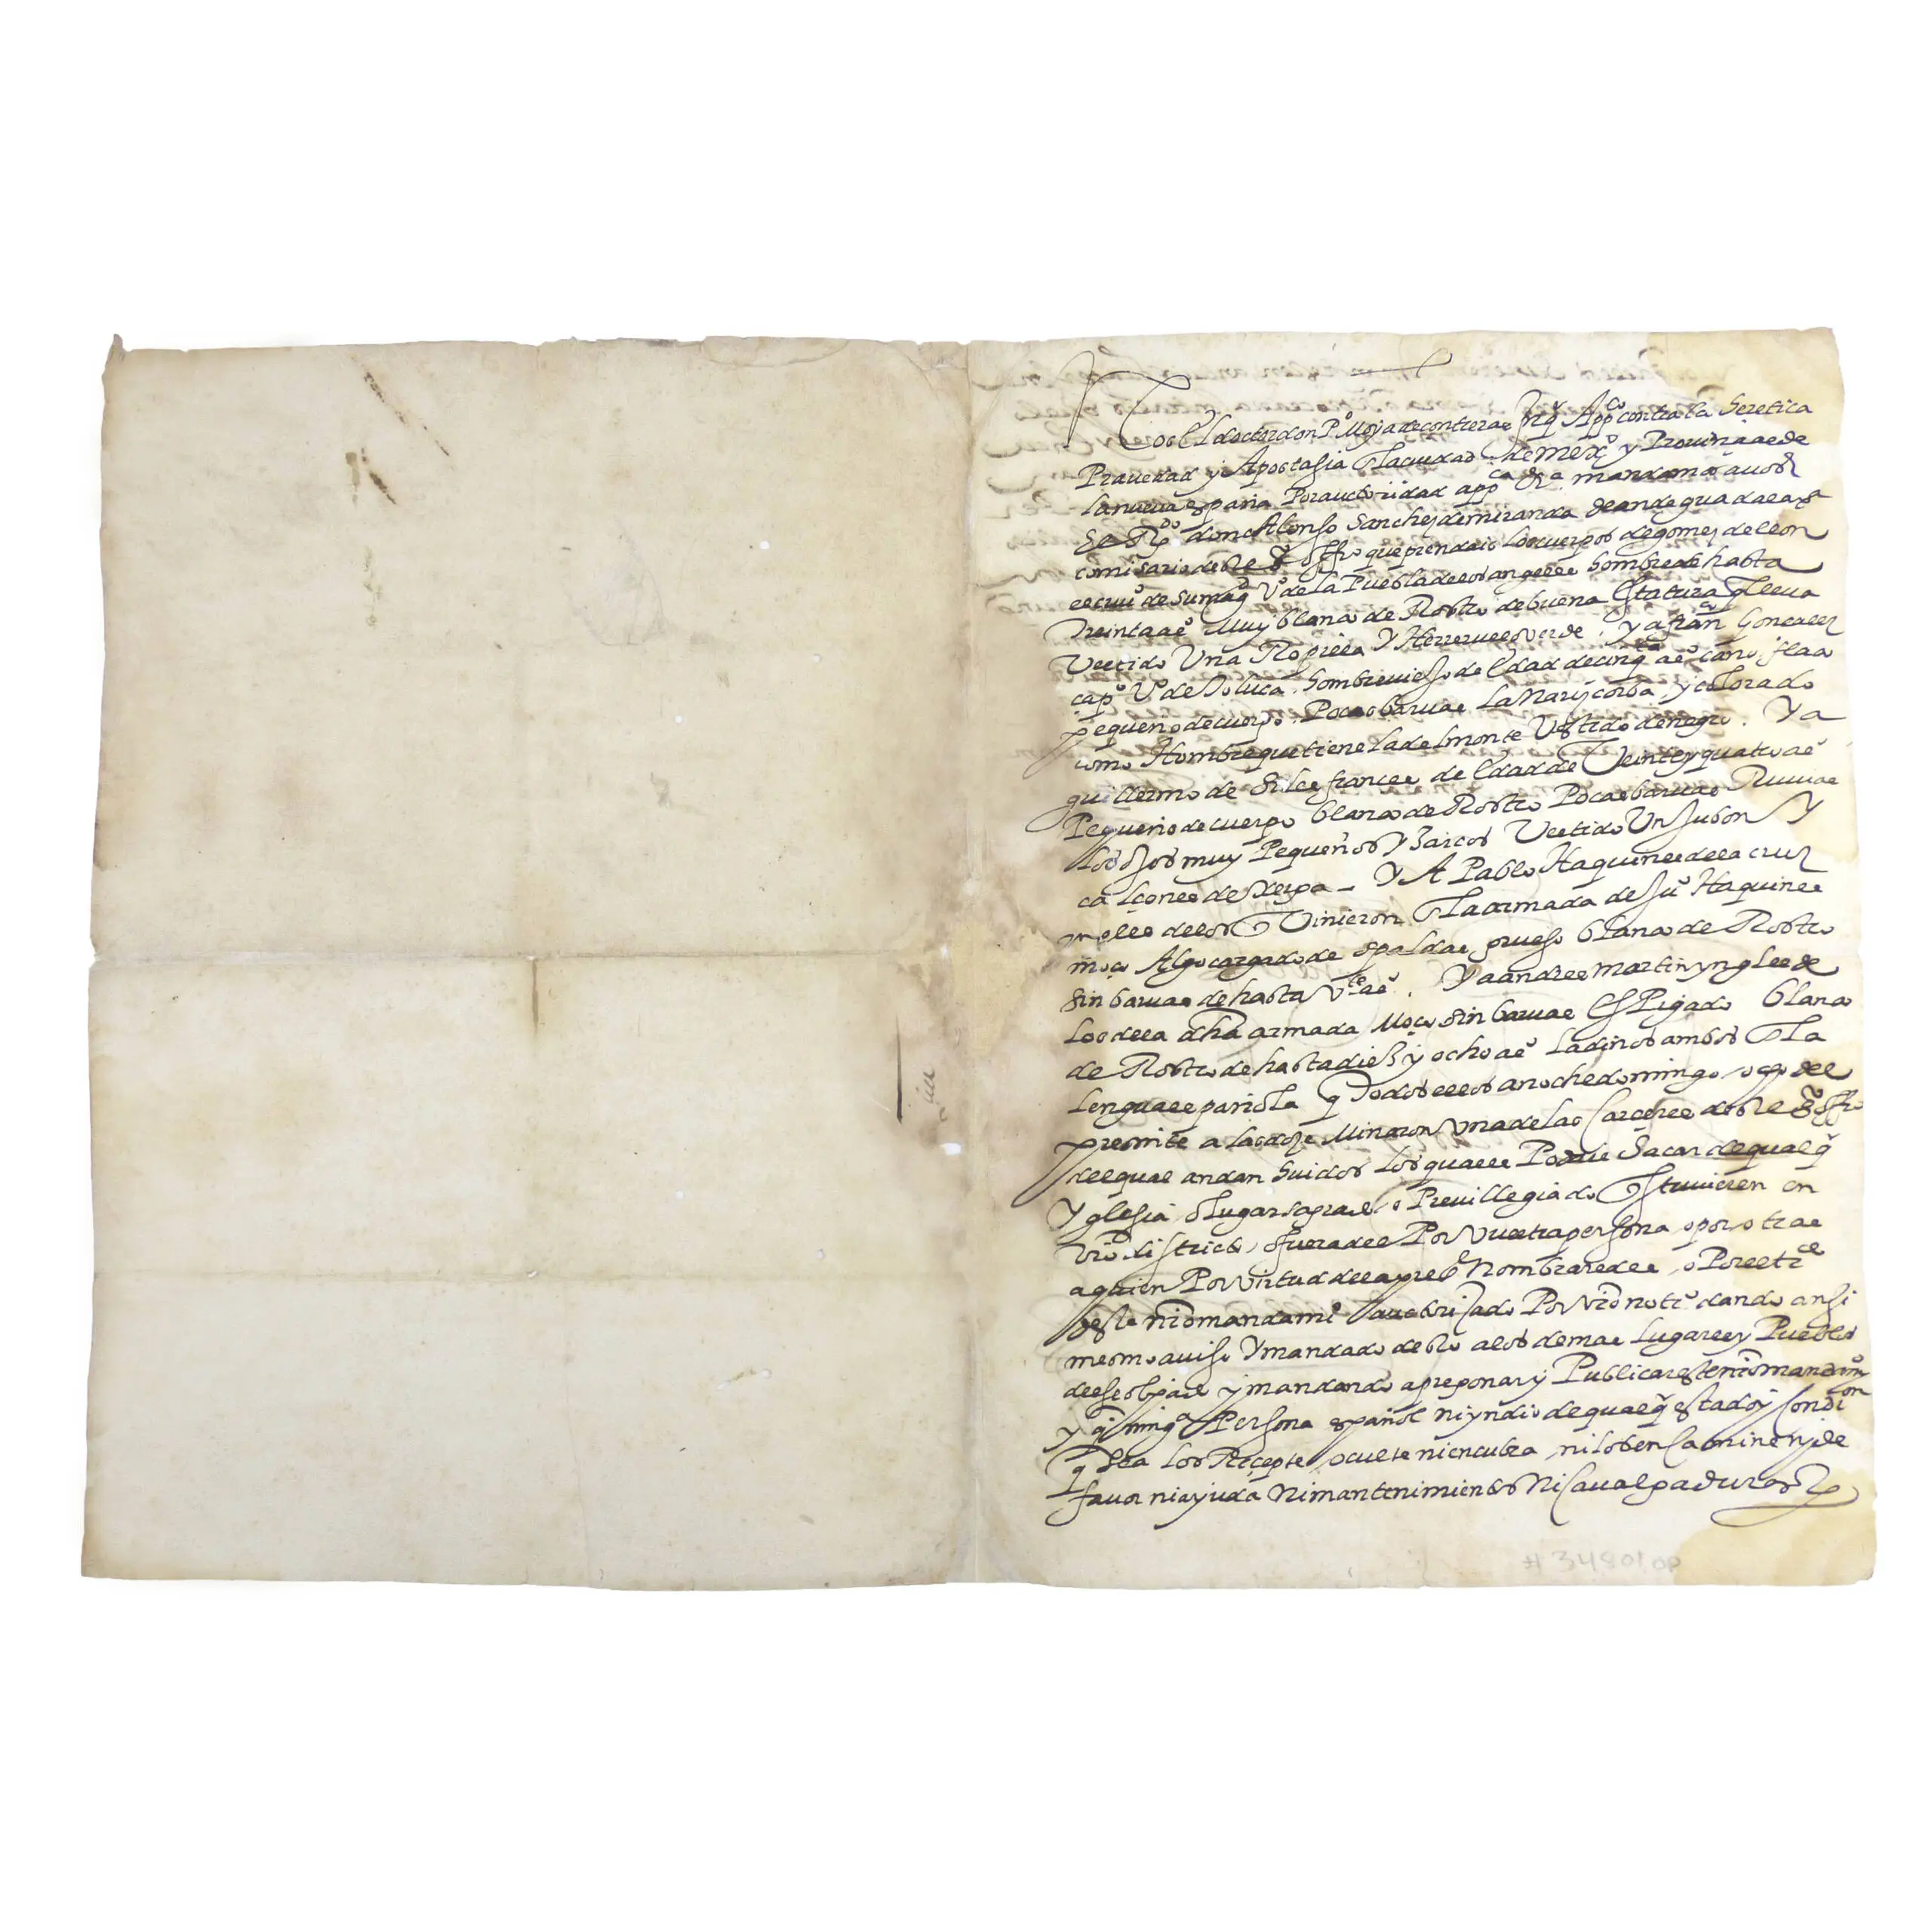 Nos El doctor don P° Moya de contreras Inqor Appco contra la heretica
Pravedad y Apostasia En la ciudad de mexco y Provincias de
la nueva españa Por auctoridad appca etca mandamos a vos
El Rdo don Alonso Sanchez de miranda dean de guadalaxa
comisario deste sto offio que prendais los cuerpos de gomez de leon
escriuo de su magd vo de la Puebla de los angeles hombre de hasta
treinta as muy blanco de Rostro de buena Estatura q lleva
Vestido Una Ropilla Y Herreruelo verde . y a fran co Gonçalez
cap° Vo de toluca . hombre viejo de Edad de cinqta as cano, flaco
pequeño de cuerpo . Pocas barvas La nariz corba, y colorado
como Hombre que tiene la del monte Vestido de negro . Y a
guillermo de siles frances de Edad de Veinte y quatro as
Pequeño de cuerpo blanco de Rostro Pocas barvas Ruvias
los ojos muy Pequeños y Zarcos Vestido Un Jubon Y
calçones de xerga - Y A Pablo Haquines de la cruz
yngles de los q Vinieron En la armada de Juo Haquines
moço Algo cargado de espaldas grueso blanco de Rostro
sin barvas de hasta Vte as . Y a andres martin yngles de
los de la dha armada Moço sin barvas Espigado blanco
de Rostro de hasta diez y ocho as ladinos ambos En la
lengua española q todos ellos anoche domingo ocho del
presente a las doze Minaron una de las Carceles deste sto offio
del qual andan huidos los quales Podais Sacar de qualqr
Yglesia o lugar sagrado o Previllegiado q Estuvieren en
vro districto, o fuera del Por Vuestra persona o por otras
a quien Por virtud de la preste nombraredes, o Por el trce
deste nro mandamio auctorizado Por vro noto dando ansi
mesmo aviso Y mandado desto a los demas lugares y Pueblos
dese obpado y mandando apregonar y Publicar este nro mandamio
y q ninga Persona español ni yndio de qualqr estado y Condicion
q sea los Recepte, oculte ni encubra, ni los encamine ni de
favor ni ayuda Ni mantenimientos Ni Cavalgaduras
# 34801.00